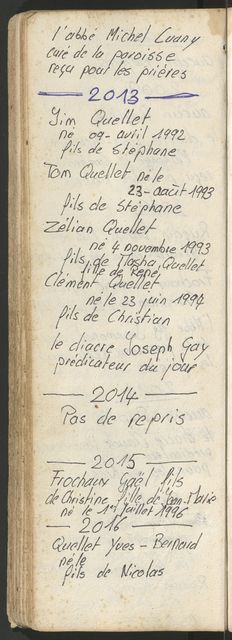 l'abbé Michel Cuany
curé de la paroisse
reçu pour les prières
— 2013 —
Jim Quellet
né 09-avril 1992
fils de Stéphane
Tom Quellet né le
23-août 1993
fils de Stéphane
Zélian Quellet
né 4 novembre 1993
fils de Flasha Quellet
fille de René
Clément Quellet
né le 23 juin 1994
fils de Christian
le diacre Joseph Gay
prédicateur du jour
— 2014 —
Pas de repris
— 2015 —
Frochaux Gaël fils
de Christine fille de Jean-Marie
né le 1er juillet 1996
— 2016 —
Quellet Yves-Bernard
né le
fils de Nicolas